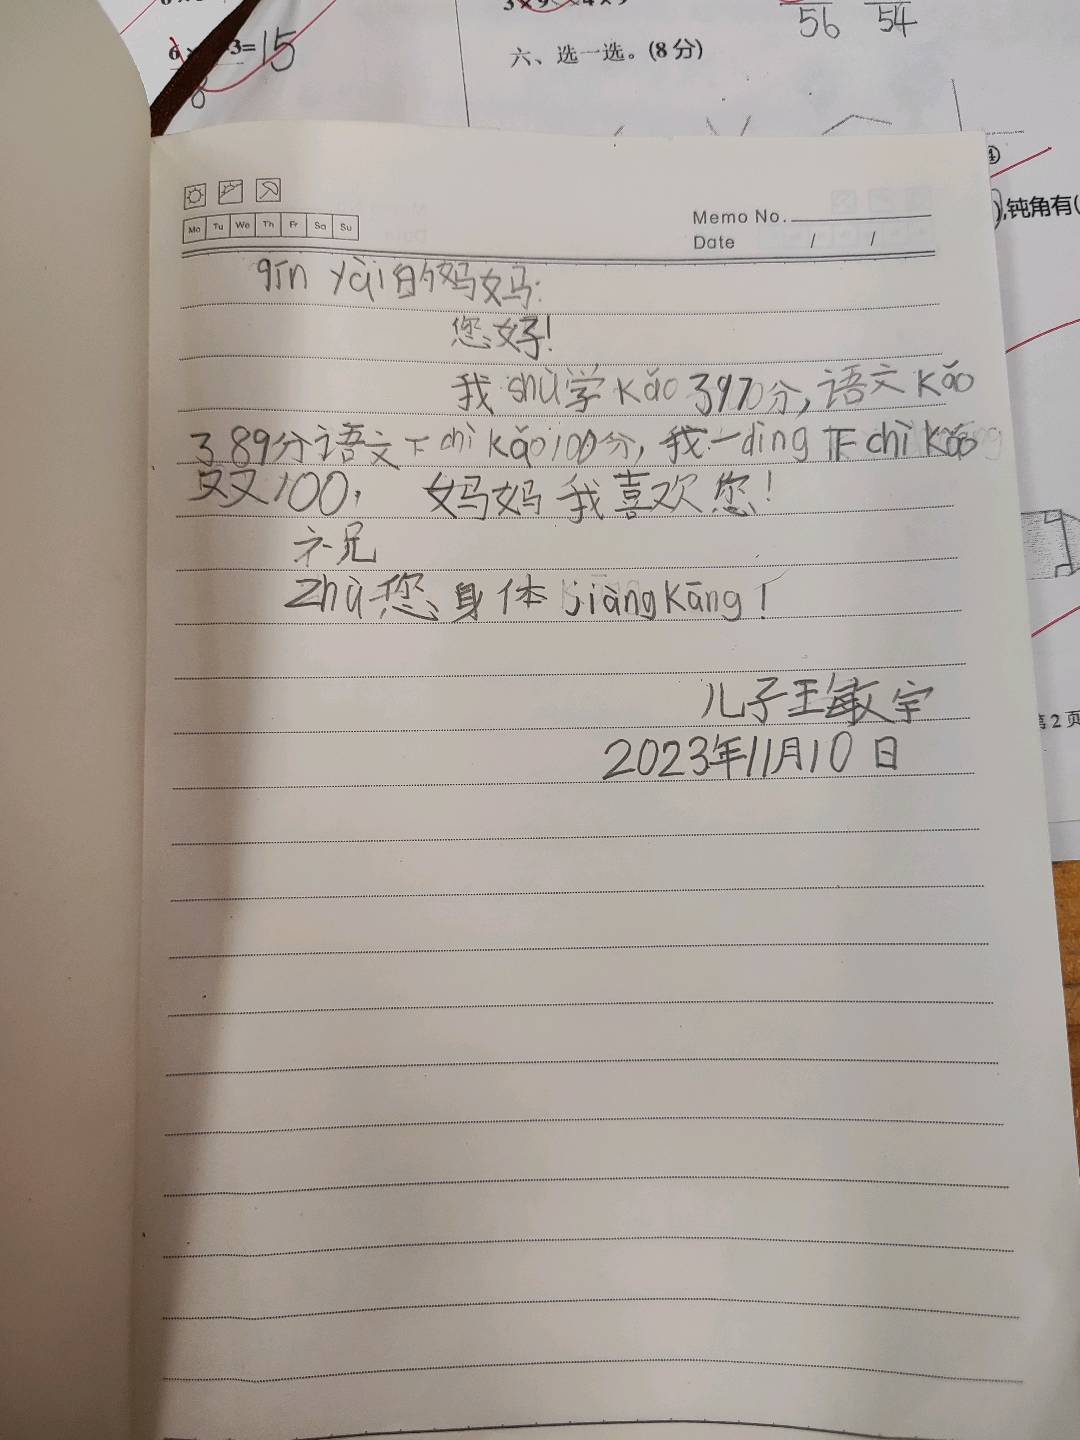 3=15
8
六、选一选。(8分)
56 54
④
),钝角有(
Mo Tu We Th Fr Sa Su
Memo No.
Date / /
qīn yài的妈妈:
您好!
我shù学kǎo了97分,语文kǎo
了89分语文下chì kǎo100分,我一dìng下chì kǎo
双100, 妈妈我喜欢您!
祝
zhù您身体jiàngkāng!
儿子王敏宇
2023年11月10日
第2页